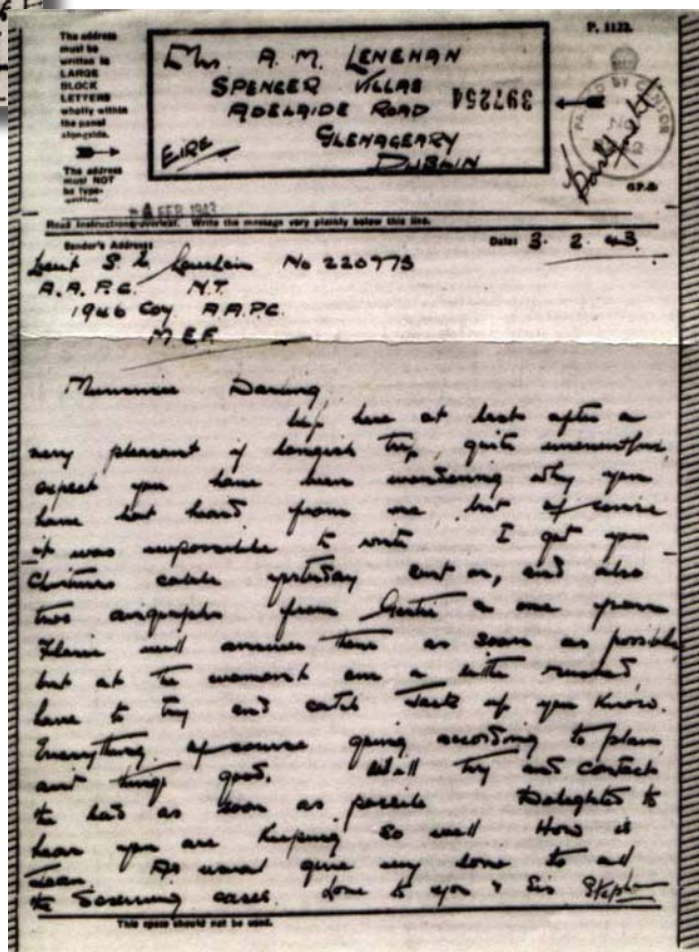 The address
must be
written in
LARGE
BLOCK
LETTERS
wholly within
the panel
alongside.
The address
must NOT
be type-
written.
Mrs. A. M. LENEHAN
SPENCER VILLAS
ADELAIDE ROAD
GLENAGEARY
DUBLIN
EIRE
397254
P. 1122.
PASSED BY CENSOR
FEB 1943
Read instructions overleaf. Write the message very plainly below this line.
Sender's Address
Date: 3. 2. 43
Lieut S. Lenehan No 220973
A.A.P.C. N.T.
1946 Coy A.A.P.C.
M.E.F.
Mummie Darling,
here at last after a
very pleasant if longish trip, quite uneventful,
expect you have been wondering why you
have not heard from me but of course
it was impossible to write I got your
Christmas cable yesterday and also
two airgraphs from & one from
will answer them as soon as possible
but at the moment am a little rushed,
have to try and catch you know.
Everything of course going according to plan
and things good. Will try and contact
the lads as soon as possible Delighted to
hear you are keeping so well How is
As usual give my love to all
the screaming cases. Love to you & Sis Stephen
This space should not be used.